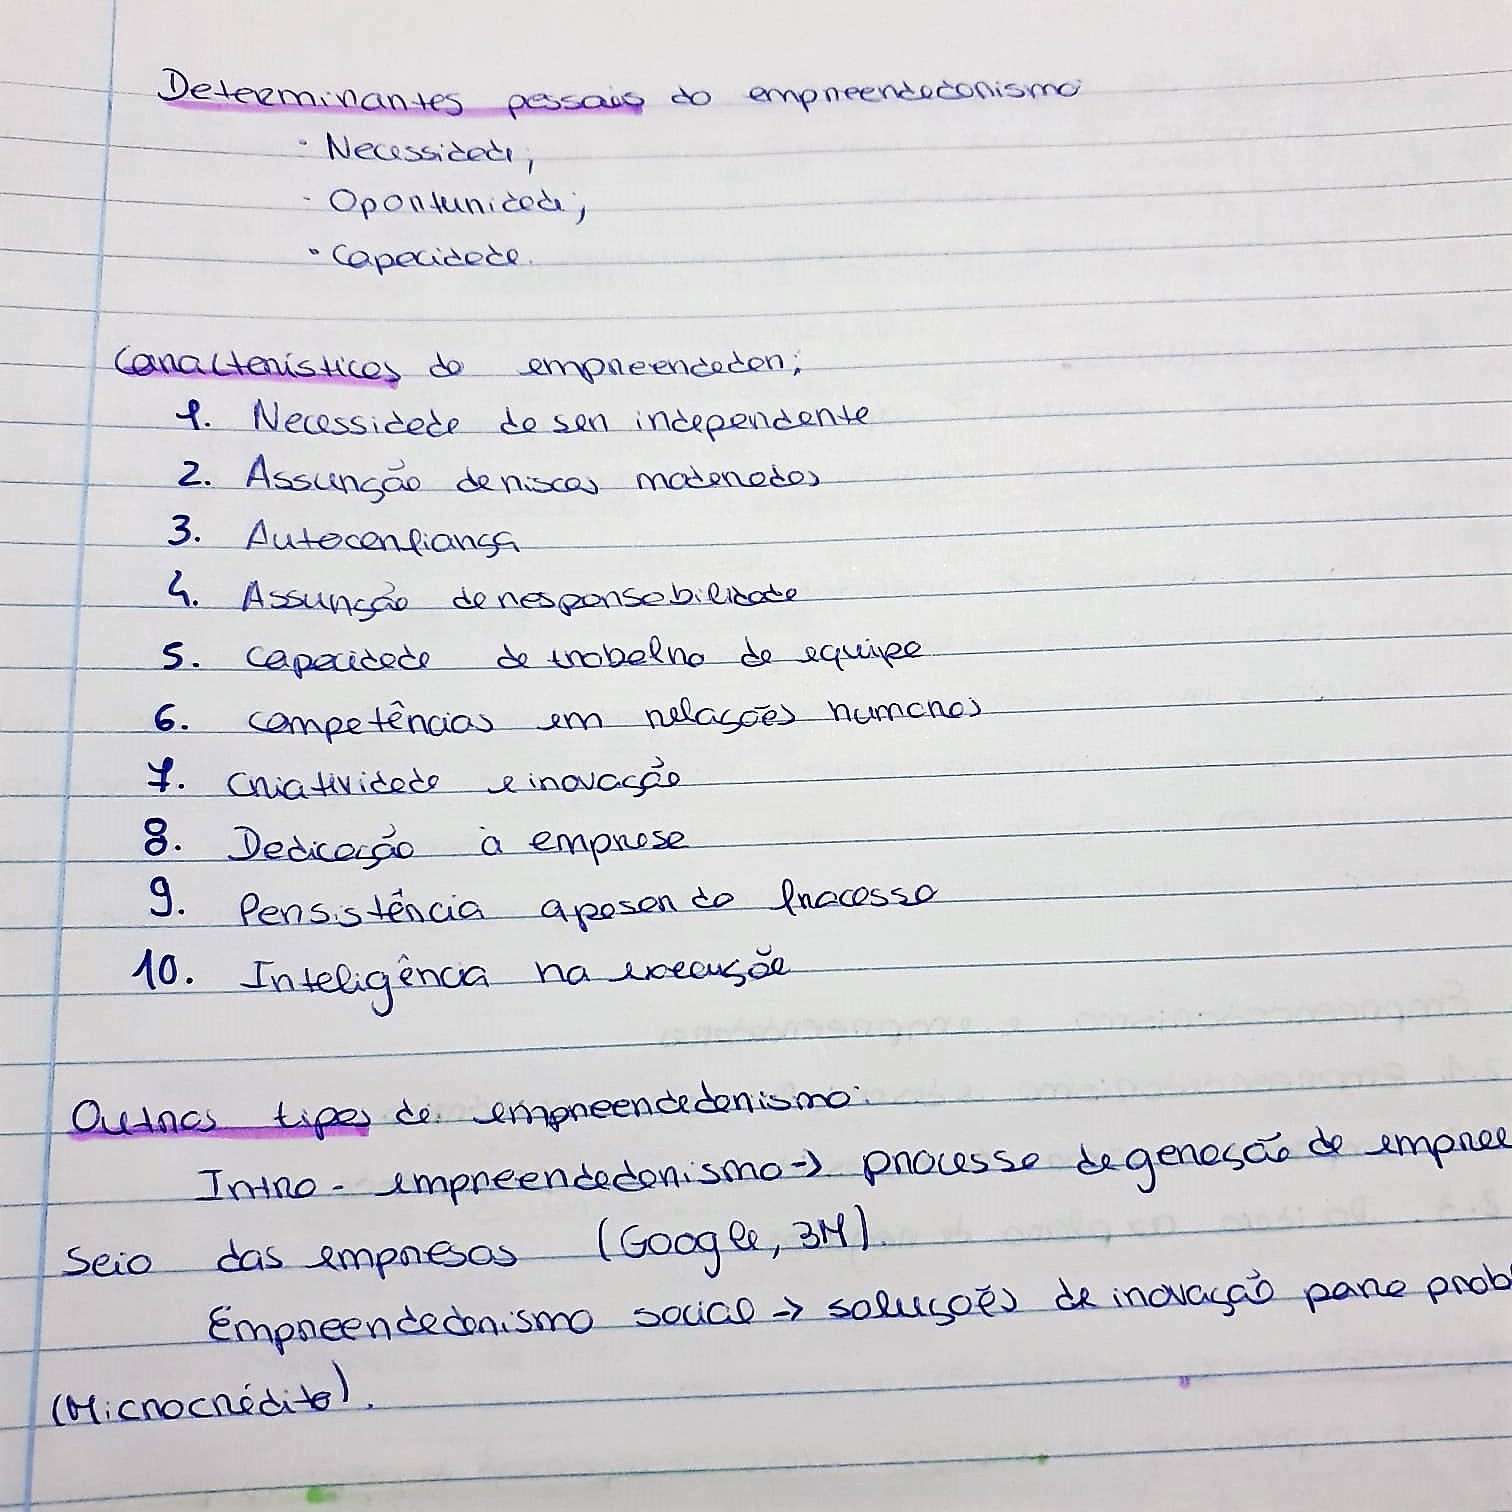 Determinantes pessoais do empreendedorismo
· Necessidade;
· Oportunidade;
· Capacidade.
Características do empreendedor:
1. Necessidade de ser independente
2. Assunção de riscos moderados
3. Autoconfiança
4. Assunção de responsabilidade
5. Capacidade de trabalho de equipe
6. Competências em relações humanas
7. Criatividade e inovação
8. Dedicação à empresa
9. Persistência apesar do fracasso
10. Inteligência na execução
Outros tipos de empreendedorismo:
Intra-empreendedorismo → processo de geração de empree
seio das empresas (Google, 3M).
Empreendedorismo social → soluções de inovação para prob
(Microcrédito).